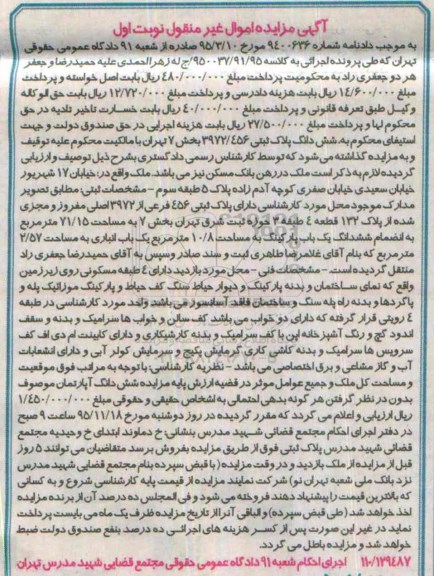 آگهی مزایده اموال غیر منقول نوبت اول
به موجب دادنامه شماره ۹۴۰۰۶۳۶ مورخ ۹۵/۳/۱۰ صادره از شعبه ۹۱ دادگاه عمومی حقوقی
تهران که طی پرونده اجرائی به کلاسه ۹۵۰۰۳۷/۹۱/۹۵/ج له زهرا احمدی علیه حمیدرضا و جعفر
هر دو جعفری راد به محکومیت پرداخت مبلغ ۴۸۰/۰۰۰/۰۰۰ ریال بابت اصل خواسته و پرداخت
مبلغ ۱۴/۶۰۰/۰۰۰ ریال بابت هزینه دادرسی و پرداخت مبلغ ۱۲/۷۲۰/۰۰۰ ریال بابت حق الوکاله
وکیل طبق تعرفه قانونی و پرداخت مبلغ ۴۰/۰۰۰/۰۰۰ ریال بابت خسارت تاخیر تادیه در حق
محکوم لها و پرداخت مبلغ ۲۷/۵۰۰/۰۰۰ ریال بابت هزینه اجرایی در حق صندوق دولت و جهت
استیفای محکوم به، شش دانگ پلاک ثبتی ۳۹۷۲/۴۵۶ بخش ۷ تهران با مالکیت محکوم علیه توقیف
و به مزایده گذاشته می شود که توسط کارشناس رسمی دادگستری بشرح ذیل توصیف و ارزیابی
گردیده لازم به ذکر است ملک در رهن بانک مسکن نیز می باشد. ملک واقع در: خیابان ۱۷ شهریور
خیابان سعیدی خیابان صفری کوچه آدم زاده پلاک ۵ طبقه سوم - مشخصات ثبتی: مطابق تصویر
مدارک موجود محل مورد کارشناسی دارای پلاک ثبتی ۴۵۶ فرعی از ۳۹۷۲ اصلی مفروز و مجزی
شده از پلاک ۱۳۲ قطعه ۴ طبقه ۳ حوزه ثبت شرق تهران بخش ۷ به مساحت ۷۱/۱۵ مترمربع
به انضمام ششدانگ یک باب پارکینگ به مساحت ۱۰/۸ مترمربع یک باب انباری به مساحت ۲/۵۷
مترمربع که بنام آقای غلامرضا طاهری ثبت و سند صادر و سپس به آقای حمیدرضا جعفری راد
منتقل گردیده است. - مشخصات فنی - محل مورد بازدید دارای ۴ طبقه مسکونی روی زیرزمین
واقع که نمای ساختمان و بدنه پارکینگ و دیوار حیاط سنگ کف حیاط و پارکینگ موزائیک پله و
پاگردها و بدنه راه پله سنگ و ساختمان فاقد آسانسور می باشد واحد مورد کارشناسی در طبقه
۴ رویتی قرار گرفته که دارای دو خواب می باشد کف سالن و خواب ها سرامیک و بدنه و سقف
اندود گچ و رنگ آشپزخانه اپن با کف سرامیک و بدنه کاشیکاری و دارای کابینت ام دی اف کف
سرویس ها سرامیک و بدنه کاشی کاری گرمایش پکیج و سرمایش کولر آبی و دارای انشعابات
آب و گاز مشاعی و برق اختصاصی می باشد - نظریه کارشناسی: با توجه به مراتب فوق موقعیت
و مساحت کل ملک و جمیع عوامل موثر در قضیه ارزش پایه مزایده شش دانگ آپارتمان موصوف
بدون در نظر گرفتن هر گونه بدهی احتمالی به اشخاص حقیقی و حقوقی و مبلغ ۱/۴۵۰/۰۰۰/۰۰۰
ریال ارزیابی و اعلام می گردد که مقرر گردیده در روز دوشنبه مورخ ۹۵/۱۱/۱۸ ساعت ۹ صبح
در دفتر اجرای احکام مجتمع قضائی شهید مدرس بنشانی: خ دماوند ابتدای خ وحیدیه مجتمع
قضائی شهید مدرس پلاک ثبتی فوق از طریق مزایده بفروش برسد متقاضیان می توانند ۵ روز
قبل از مزایده از ملک بازدید و در وقت مزایده (با قبض سپرده بنام مجتمع قضایی شهید مدرس
نزد بانک ملی شعبه تهران نو) شرکت نمایند مزایده از قیمت پایه کارشناسی شروع و به کسانی
که بالاترین قیمت را پیشنهاد دهند فروخته می شود و فی المجلس ده درصد آن از برنده مزایده
اخذ خواهد شد (طی قبض سپرده) و الباقی آنرا از تاریخ مزایده ظرف یک ماه می بایست پرداخت
نماید در غیر این صورت پس از کسر هزینه های اجرائی ده درصد بنفع صندوق دولت ضبط
خواهد شد و مزایده باطل می گردد.
۱۱۰/۱۲۹۴۸۷ اجرای احکام شعبه ۹۱ دادگاه عمومی حقوقی مجتمع قضایی شهید مدرس تهران